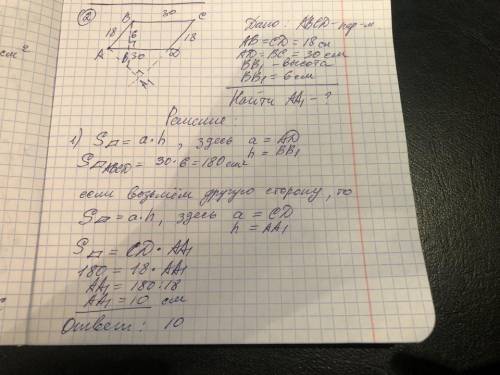 см²
②
30
B
C
18
6
18
A
B₁
30
D
A₁
Дано: ABCD – пар-м.
AB = CD = 18 см
AD = BC = 30 см
BB₁ – высота
BB₁ = 6 см
Найти AA₁ – ?
Решение:
1) S▱ = a·h, здесь a = AD
h = BB₁
S▱ABCD = 30·6 = 180 см²
если возьмём другую сторону, то
S▱ = a·h, здесь a = CD
h = AA₁
S▱ = CD · AA₁
180 = 18 · AA₁
AA₁ = 180:18
AA₁ = 10 см
Ответ: 10